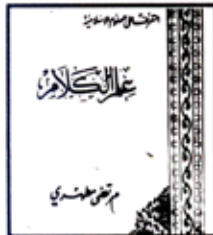 التعرف على العلوم الإسلامية
علم الكلام
مرتضى مطهري